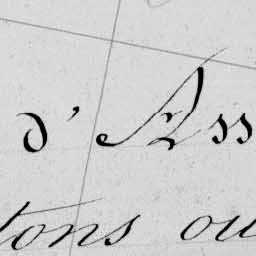 d'Ass
tons ou